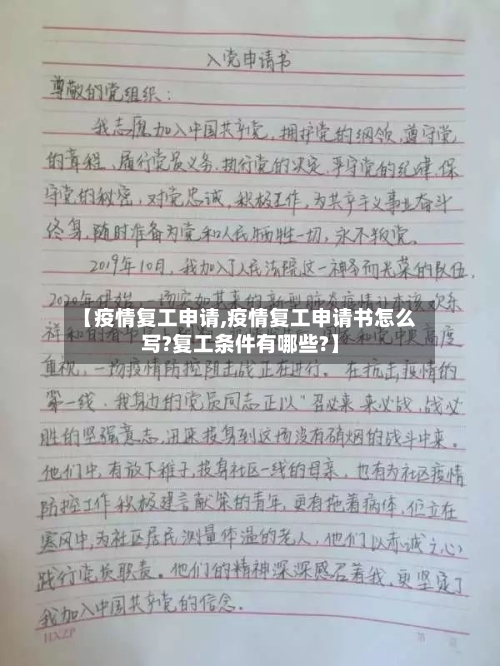 入党申请书
尊敬的党组织：
我志愿加入中国共产党，拥护党的纲领，遵守党
的章程，履行党员义务，执行党的决定，严守党的纪律，保
守党的秘密，对党忠诚，积极工作，为共产主义事业奋斗
终身，随时准备为党和人民牺牲一切，永不叛党。
2019年10月，我加入了人民法院这一神圣而光荣的队伍，
【疫情复工申请,疫情复工申请书怎么
写?复工条件有哪些?】
重视，一场疫情防控阻击战正在进行。在抗击疫情的
第一线，我身边的党员同志正以"召必来，来必战，战必
胜的坚强意志，用来投身到这场没有硝烟的战斗中来。
他们中，有放下稚子，投身社区一线的母亲，也有为社区疫情
防控工作积极建言献策的青年，更有拖着病体，伫立在
寒风中，为社区居民测量体温的老人，他们以赤诚之心
践行党员职责。他们的精神深深感召着我，更坚定了
我加入中国共产党的信念。
HXZP